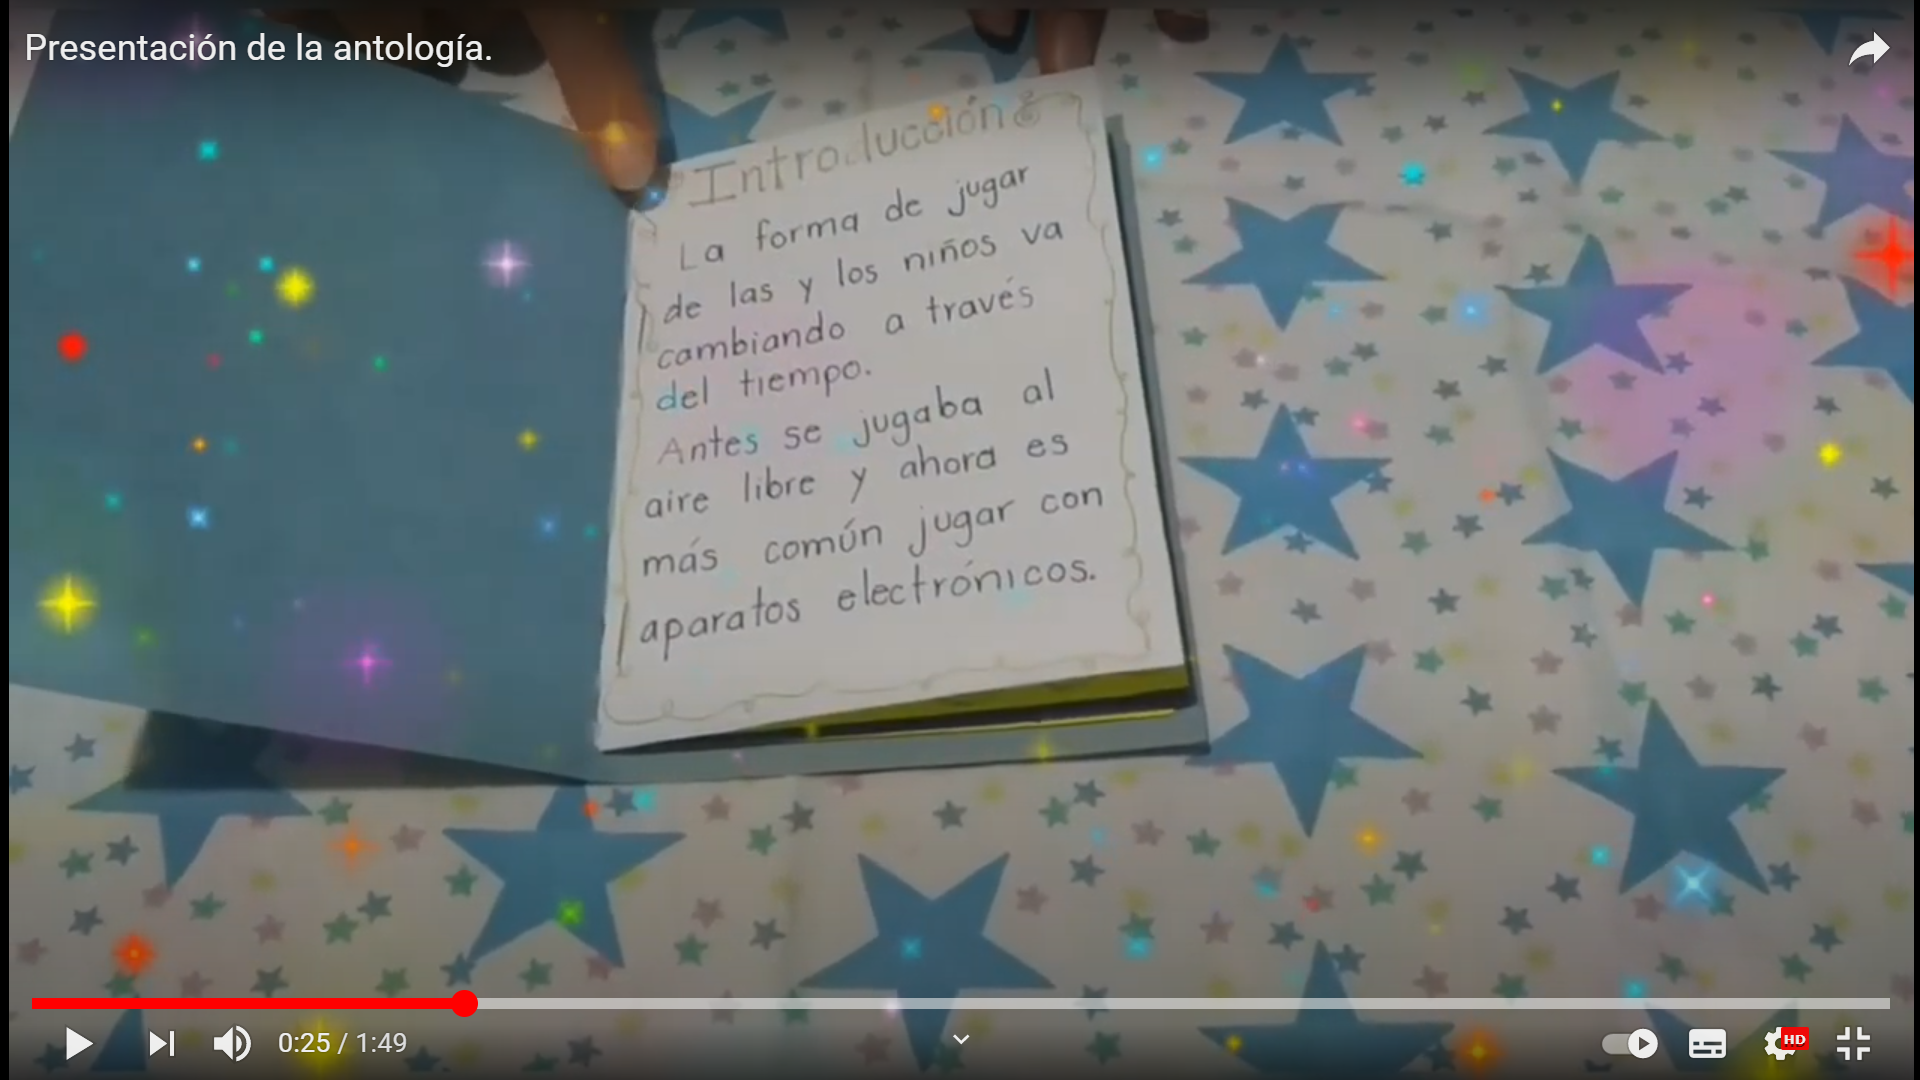 Presentación de la antología.
Introducción
La forma de jugar
de las y los niños va
cambiando a través
del tiempo.
Antes se jugaba al
aire libre y ahora es
más común jugar con
aparatos electrónicos.
0:25 / 1:49
HD